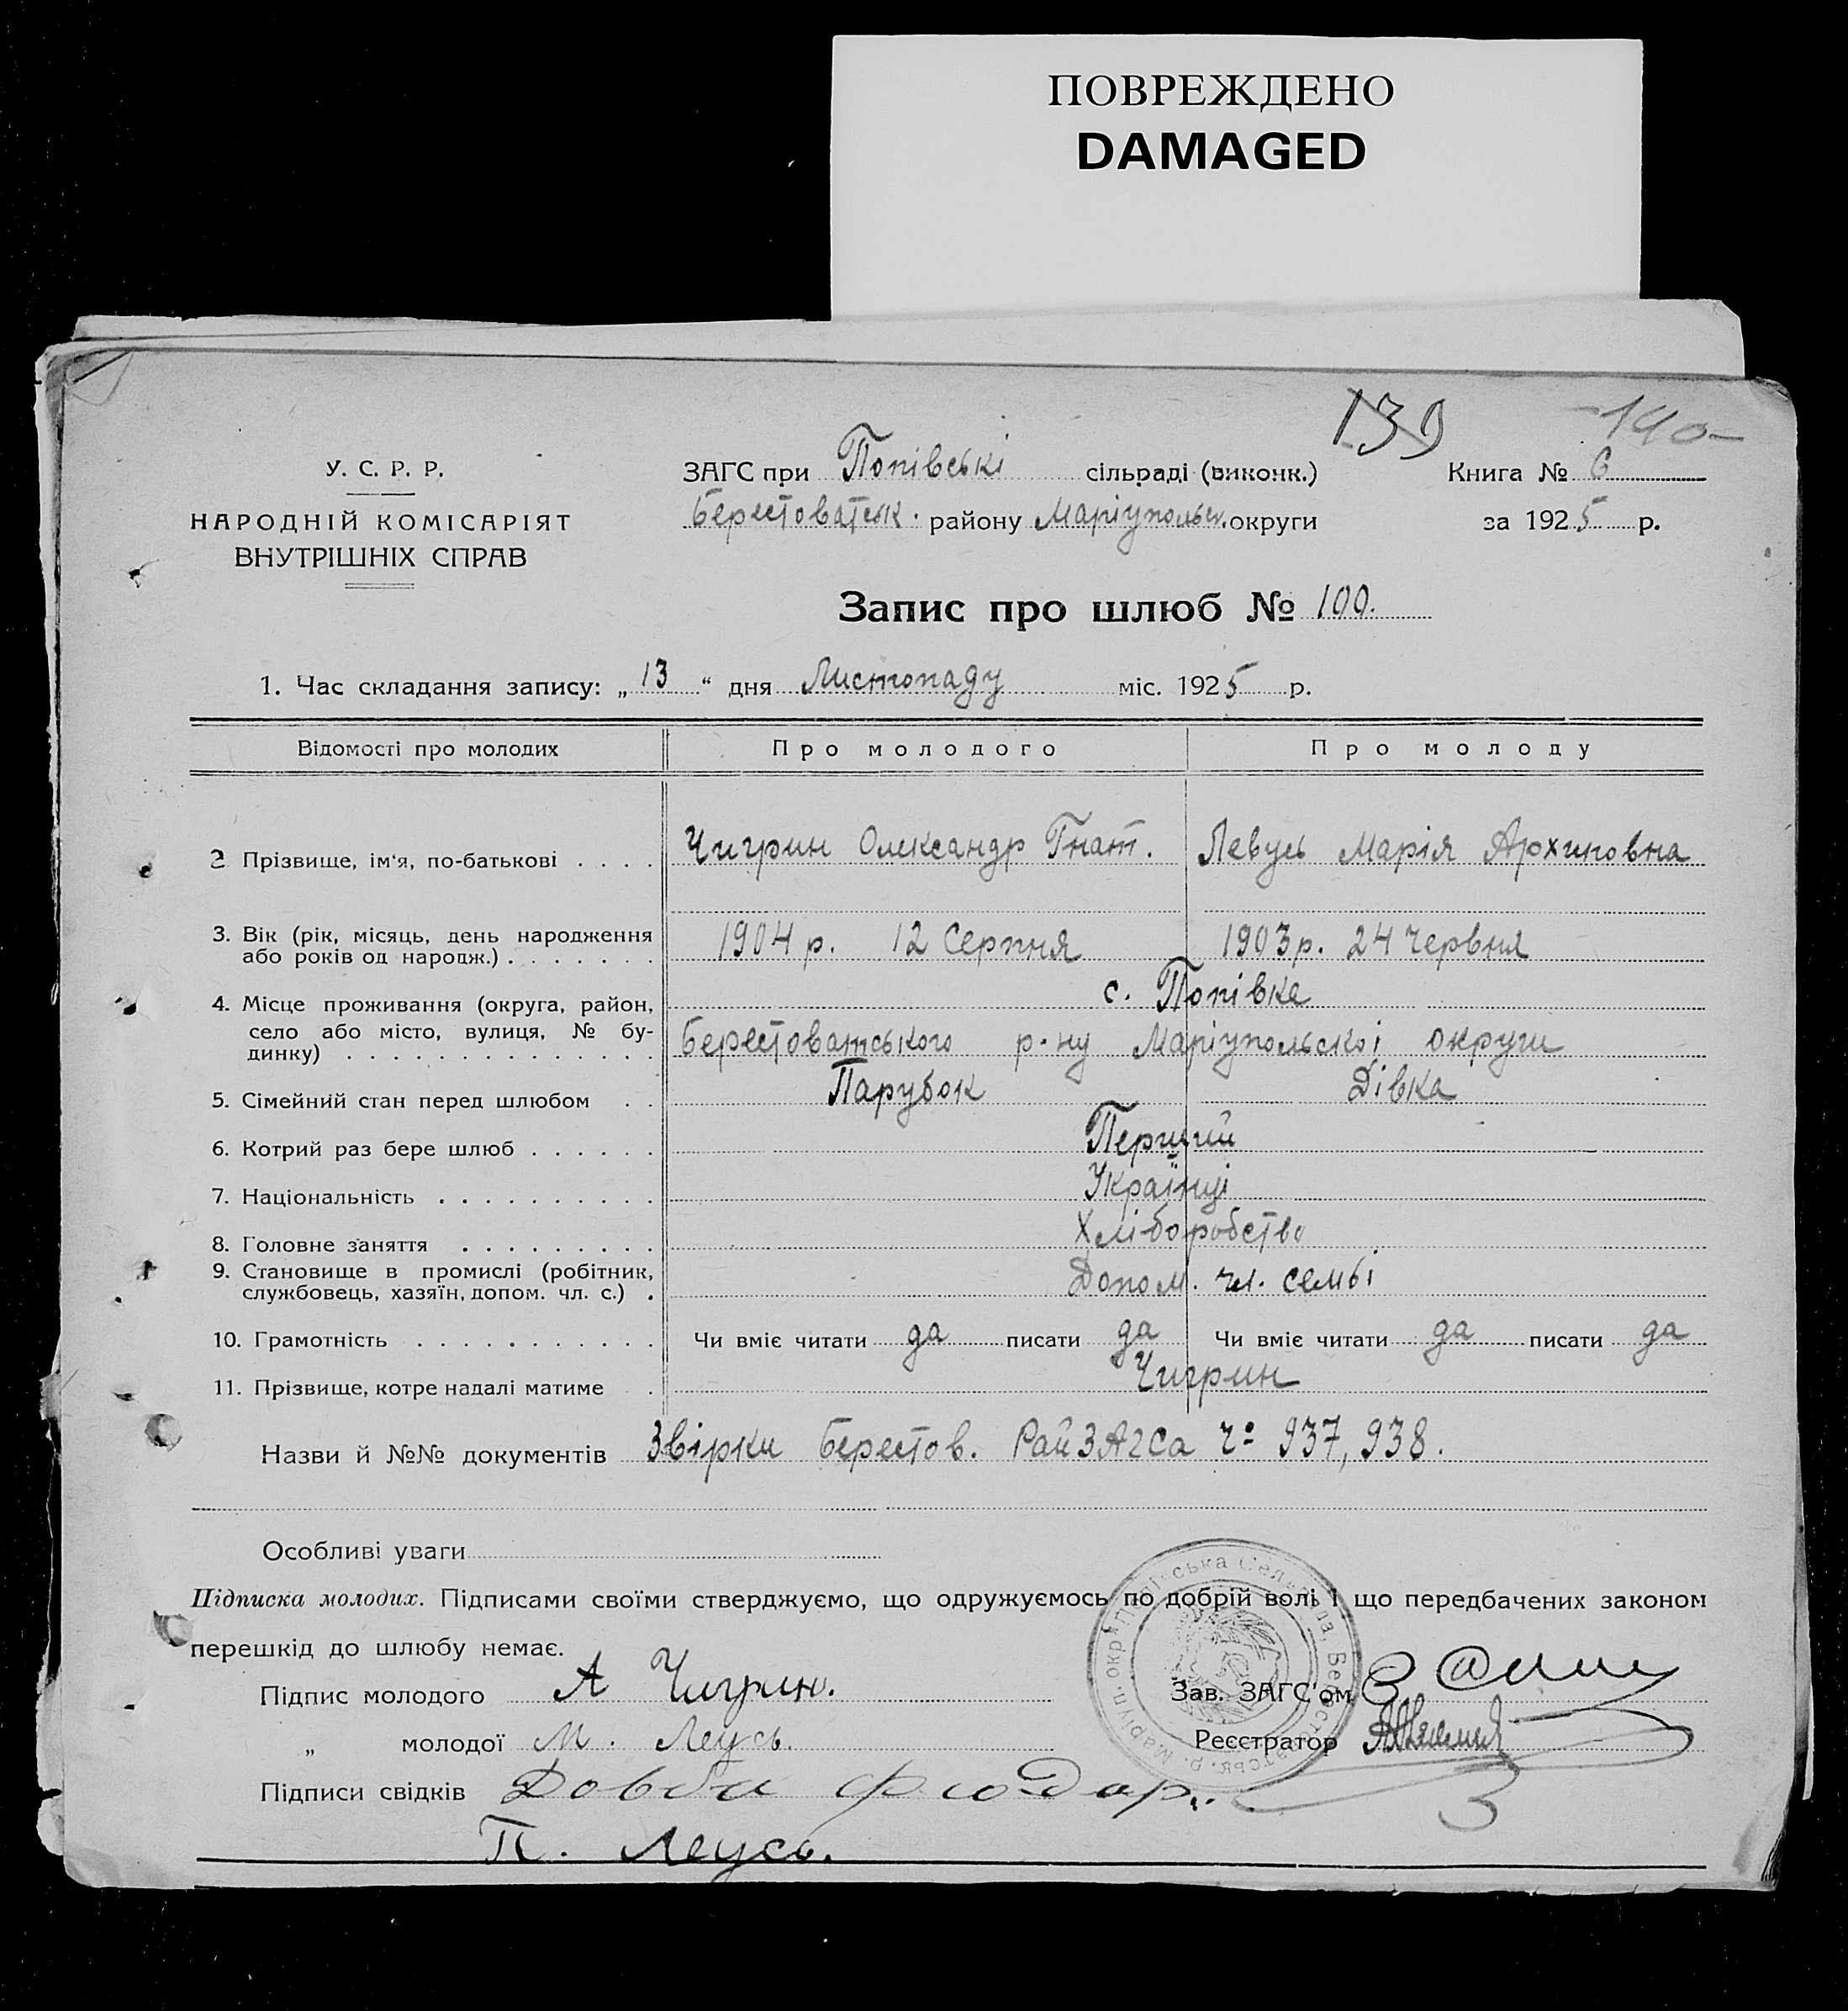 ПОВРЕЖДЕНО
DAMAGED
139
-140-
У. С. Р. Р.
НАРОДНІЙ КОМІСАРІЯТ
ВНУТРІШНІХ СПРАВ
ЗАГС при Попівські сільраді (виконк.)
Берестоватськ. району Маріупольськ. округи
Книга № 6
за 1925 р.
Запис про шлюб № 100.
1. Час складання запису: „ 13 “ дня Листопаду міс. 1925 р.
Відомості про молодих Про молодого Про молоду
2 Прізвище, ім'я, по-батькові . . . . Чигрин Олександр Гнат. Левусь Марія Архиповна
3. Вік (рік, місяць, день народження
або років од народж.) . . . . . . . 1904 р. 12 Серпня 1903 р. 24 Червня
4. Місце проживання (округа, район, с. Попівка
село або місто, вулиця, № бу-
динку) . . . . . . . . . . . . . . Берестоватського р-ну Маріупольскоі округи
5. Сімейний стан перед шлюбом . . Парубок Дівка
6. Котрий раз бере шлюб . . . . . . Перший
7. Національність . . . . . . . . . . Українці
8. Головне заняття . . . . . . . . . Хліборобство
9. Становище в промислі (робітник,
службовець, хазяїн, допом. чл. с.) . Допом. чл. семьі
10. Грамотність . . . . . . . . . . . Чи вміє читати да писати да Чи вміє читати да писати да
11. Прізвище, котре надалі матиме . Чигрин
Назви й №№ документів Звірки Берестов. РайЗАГСа ч: 937, 938.
Особливі уваги
Підписка молодих. Підписами своїми стверджуємо, що одружуємось по добрій волі і що передбачених законом
перешкід до шлюбу немає.
Підпис молодого А Чигрин.
Зав. ЗАГС'ом
„ молодої М. Леусь.
Реєстратор
Підписи свідків Довби Фіодар.
П. Леусь.